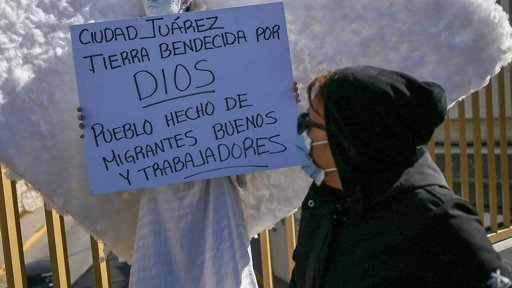 CIUDAD JUÁREZ
TIERRA BENDECIDA POR
DIOS
PUEBLO HECHO DE
MIGRANTES BUENOS
Y TRABAJADORES